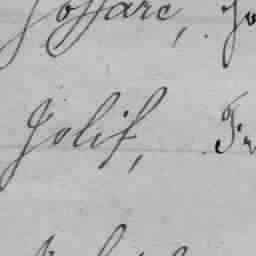 Joffare, Jo
Jolif, Fr